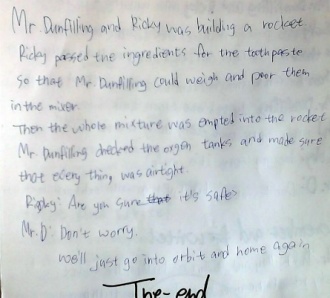 Mr. Dunfilling and Ricky was building a rocket
Ricky passed the ingredients for the toothpaste
so that Mr. Dunfilling could weigh and poor them
in the mixer.
Then the whole mixture was empted into the rocket
Mr Dunfilling checked the oxgen tanks and made sure
that every thing was airtight.
Ricky: Are you sure that it's safe?
Mr.D: Don't worry.
we'll just go into orbit and home again
The-end